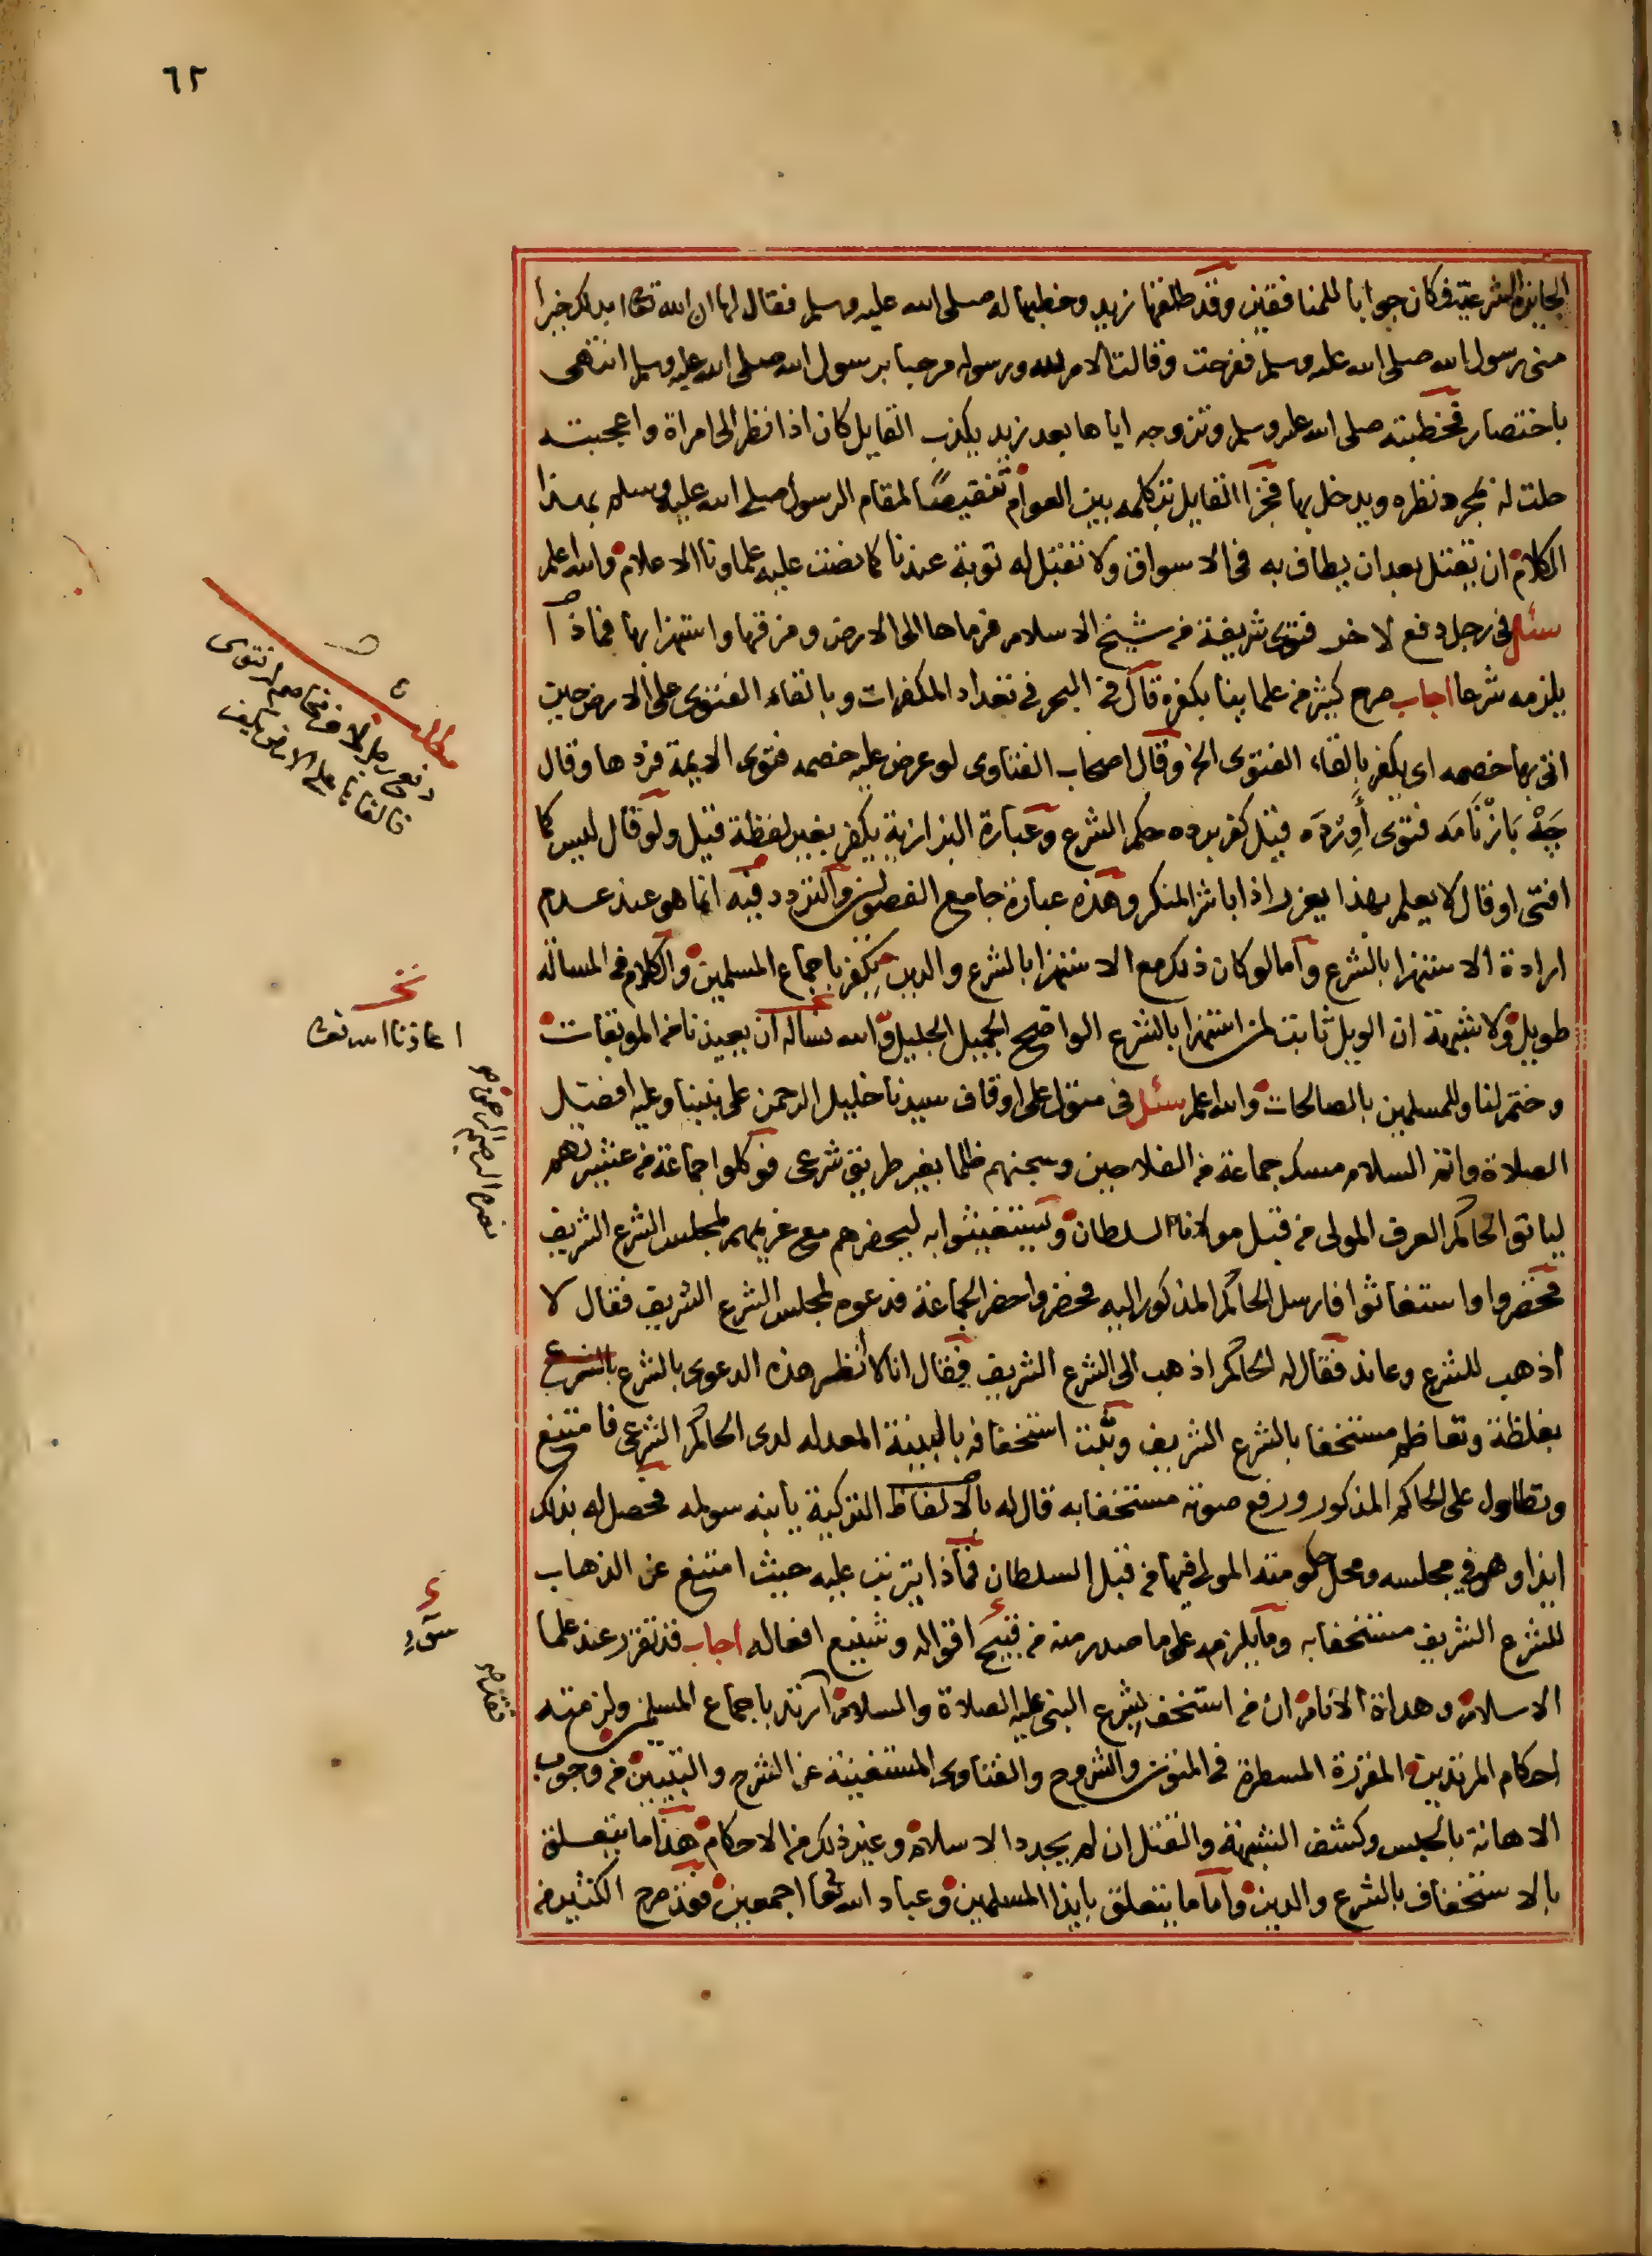 ٦٢
الجايزة الشرعية فكان جوابا للمنافقين وقد طلقها زيد وخطبها له صلى الله عليه وسلم فقال لها ان الله تعا ابدلك خيرا
منى رسول الله صلى الله عليه وسلم ففرحت وقالت الامر لله ورسوله مرحبا برسول الله صلى الله عليه وسلم انتهى
باختصار فخطبته صلى الله عليه وسلم وتزوجه اياها بعد زيد يكذب القايل كان اذا نظر الى امراة واعجبته
حلت له بمجرد نظره ويدخل بها فجزا القايل بتكلمه بين العوام تنقيصًا لمقام الرسول صلى الله عليه وسلم بهذا
الكلام ان يقتل بعد ان يطاف به فى الاسواق ولا تقبل له توبة عندنا كما نصت عليه علماونا الاعلام والله اعلم
سئل فى رجل دفع لاخر فتوى شريفة من شيخ الاسلام فرماها الى الارض ومزقها واستهزا بها فماذا
يلزمه شرعا اجاب صرح كثير من علماينا بكفره قال فى البحر فى تعداد المكفرات وبالقاء الفتوى على الارض حين
اتى بها خصمه اى يكفر بالقاء الفتوى الخ وقال اصحاب الفتاوى لو عرض عليه خصمه فتوى الايمة فردها وقال
چه بازنامه فتوى اورده قيل كفر برده حكم الشرع وعبارة البزازية يكفر بغير لفظة قيل ولو قال ليس كما
افتى او قال لا يعلم بهذا يعزر اذا باشر المنكر وهذه عبارة جامع الفصولين والتردد فيه انما هو عند عدم
ارادة الاستهزا بالشرع واما لو كان ذلك مع الاستهزا بالشرع والدين يكفر باجماع المسلمين والكلام فى المسالة
طويل ولا شبهة ان الويل ثابت لمن استهزا بالشرع الواضح الجميل الجليل والله نساله ان يعيذنا من الموبقات
وختم لنا وللمسلمين بالصالحات والله اعلم سئل فى متول على اوقاف سيدنا خليل الرحمن على نبينا وعليه افضل
الصلاة واتم السلام مسك جماعة من الفلاحين وسجنهم ظلما بغير طريق شرعى فوكلوا جماعة من عشيرتهم
لياتوا الحاكم العرف المولى من قبل مولانا السلطان ويستغيثوا به ليحضرهم مع غريمهم لمجلس الشرع الشريف
فحضروا واستغاثوا فارسل الحاكم المذكور اليه فحضر واحضر الجماعة فدعوه لمجلس الشرع الشريف فقال لا
اذهب للشرع وعاند فقال له الحاكم اذهب الى الشرع الشريف فقال انا لا انظر هذه الدعوى بالشرع بالشرع
بغلظة وتعاظم مستخفا بالشرع الشريف وثبت استخفافه بالبينة المعدله لدى الحاكم الشرعى فامتنع
وتطاول على الحاكم المذكور ورفع صوته مستخفا به قال له بالالفاظ التركية يا بنه سويله فحصل له بذلك
ايذا وهو فى مجلسه ومحل حكومته المولى فيها من قبل السلطان فماذا يترتب عليه حيث امتنع عن الذهاب
للشرع الشريف مستخفا به وما يلزمه على ما صدر منه من قبيح اقواله وشنيع افعاله اجاب قد تقرر عند علما
الاسلام وهداة الانام ان من استخف بشرع النبى عليه الصلاة والسلام ارتد باجماع المسلمين ولزمته
احكام المرتدين المقررة المسطرة فى المتون والشروح والفتاوى المستغينة عن الشرح والتبيين من وجوب
الاهانة بالحبس وكشف الشبهة والقتل ان لم يجدد الاسلام وغير ذلك من الاحكام هذا ما يتعلق
بالاستخفاف بالشرع والدين واما ما يتعلق بايذا المسلمين وعباد الله تعا اجمعين فقد صرح الكثير من
مطلب
دفع رجل لاخر مخاصم له فتوى
فالقاها على الارض يكفر
نخ
اعاذنا الله تعا
سوء